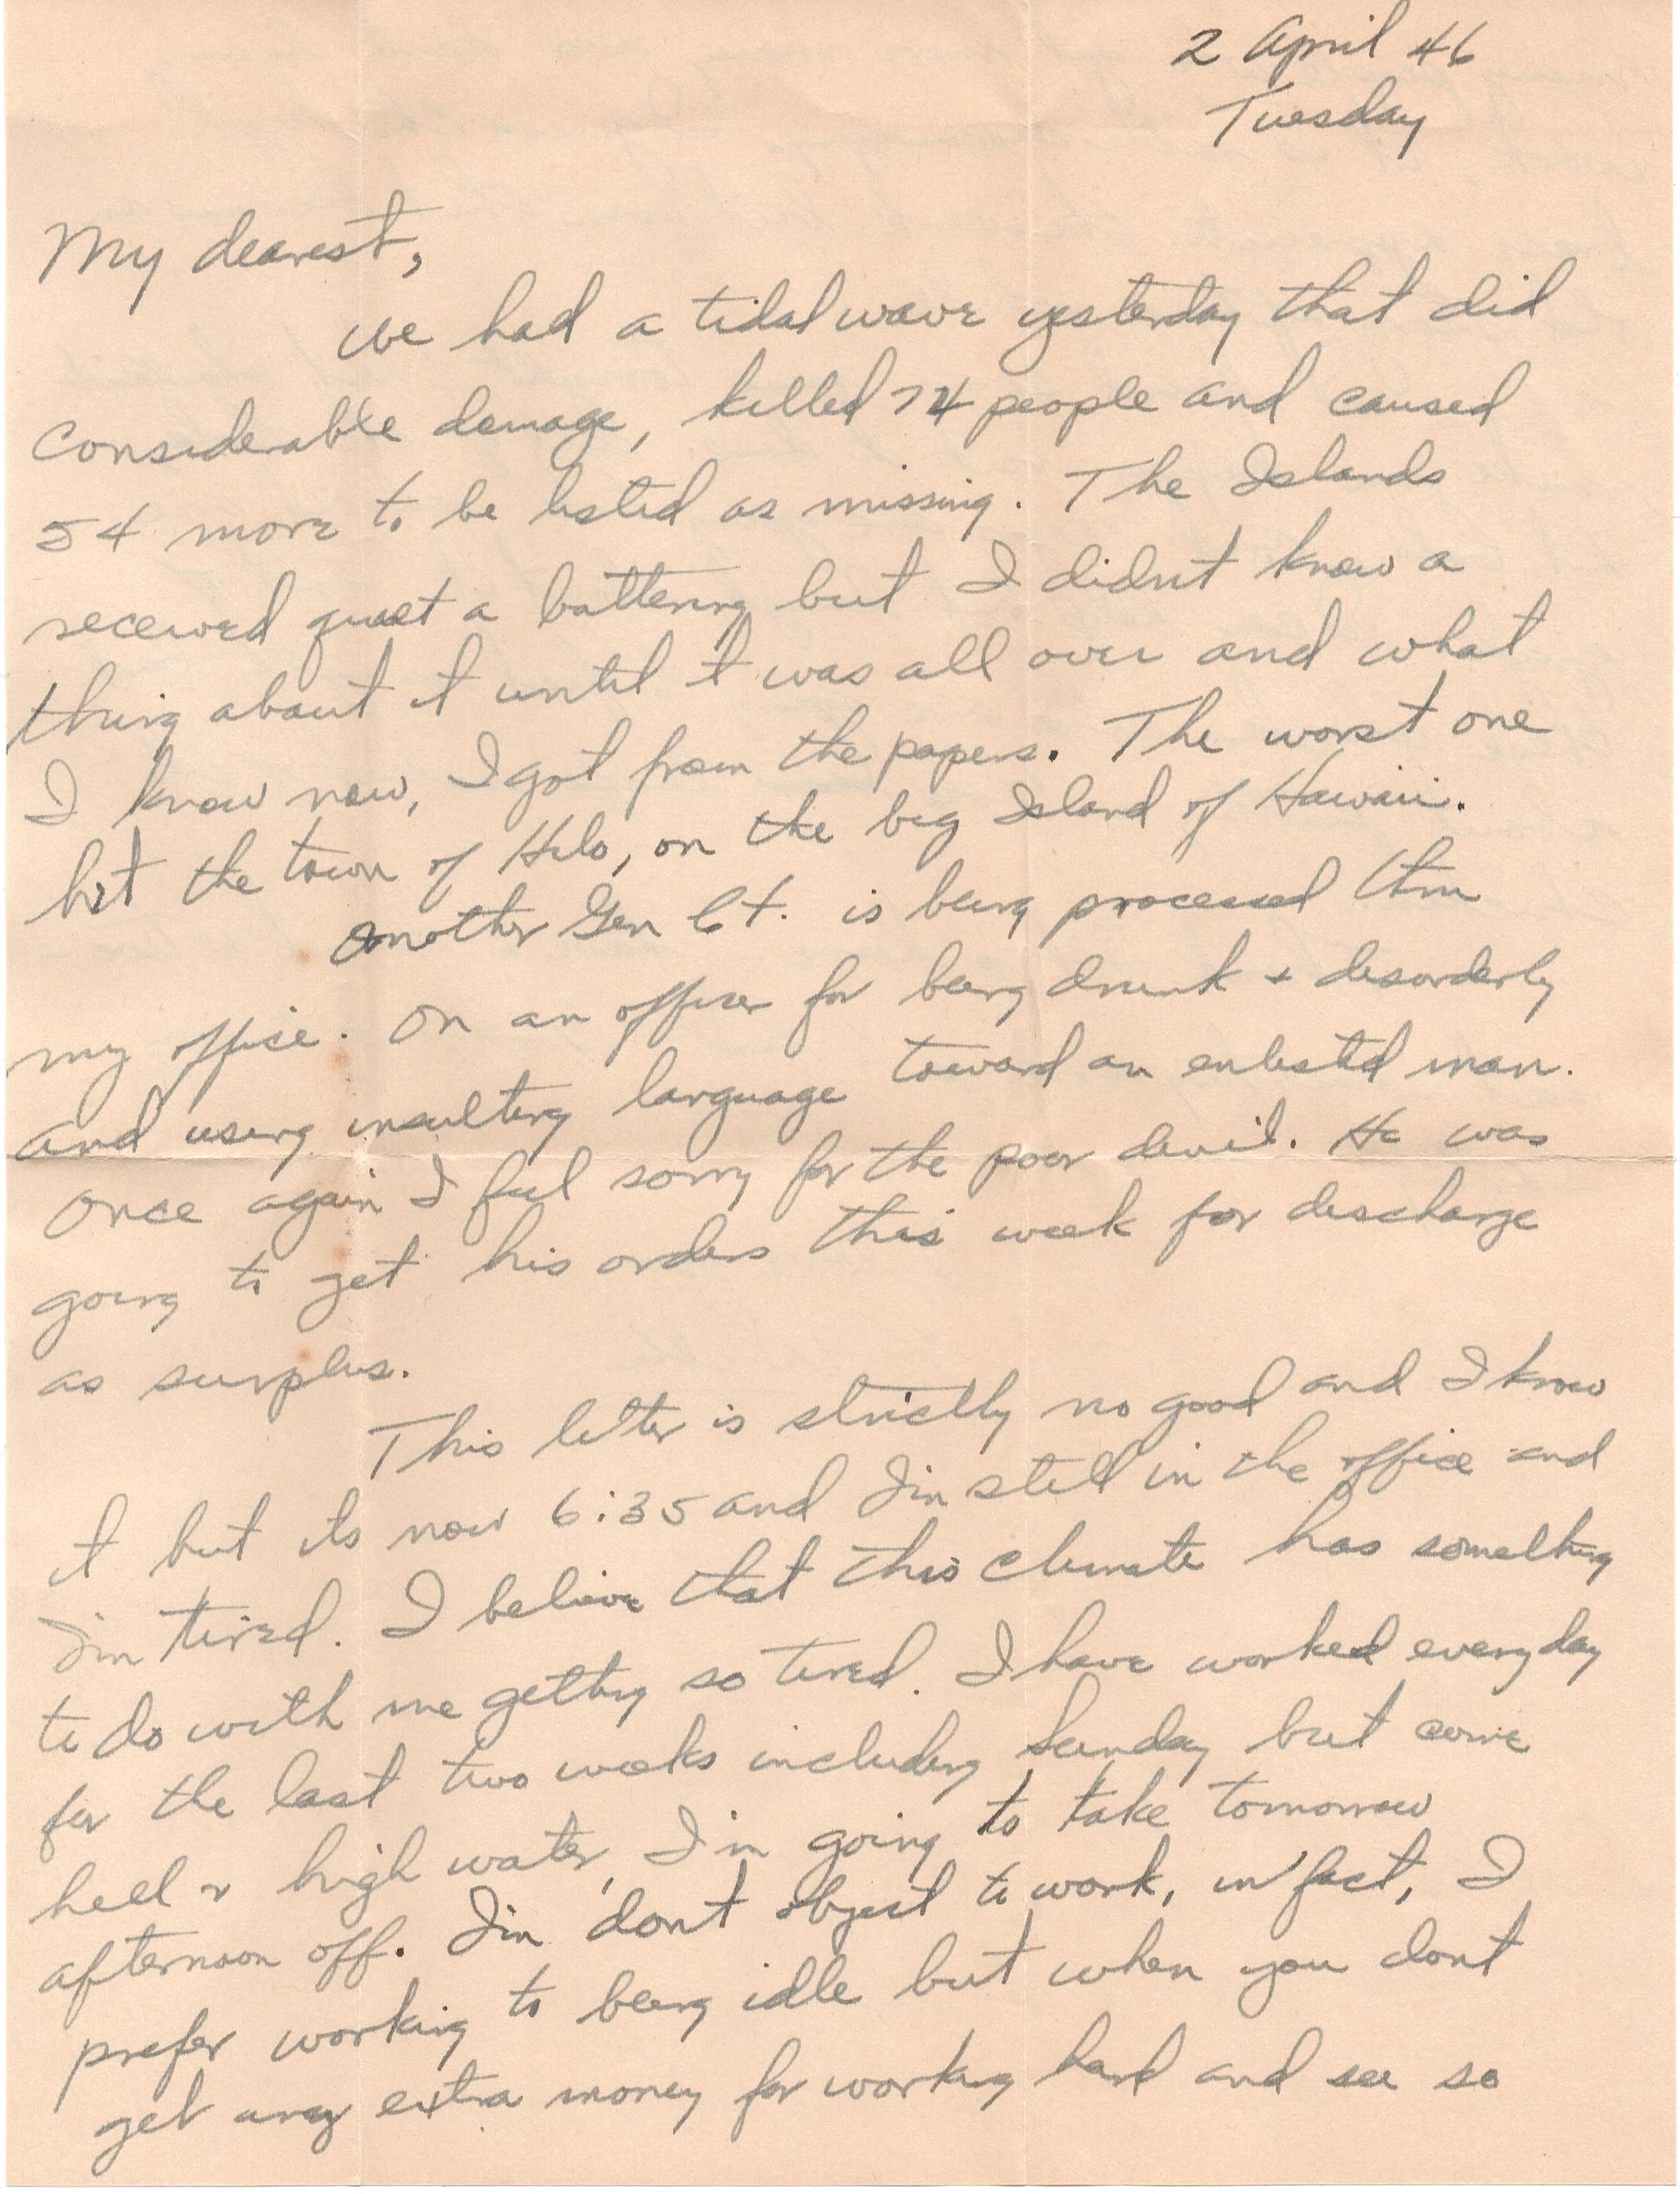 2 April 46
Tuesday
My dearest,
We had a tidal wave yesterday that did
considerable damage, killed 74 people and caused
54 more to be listed as missing. The Islands
received quiet a battering but I didn't know a
thing about it until it was all over and what
I know now, I got from the papers. The worst one
hit the town of Hilo, on the big Island of Hawaii.
Another Gen Ct. is being processed thru
my office. On an officer for being drunk + disorderly
and using insulting language toward an enlisted man.
Once again I feel sorry for the poor devil. He was
going to get his orders this week for discharge
as surplus.
This letter is strictly no good and I know
it but its now 6:35 and I'm still in the office and
I'm tired. I believe that this climate has something
to do with me getting so tired. I have worked everyday
for the last two weeks including Sunday but come
hell or high water, I'm going to take tomorrow
afternoon off. I'm don't object to work, in fact, I
prefer working to being idle but when you dont
get any extra money for working hard and see so